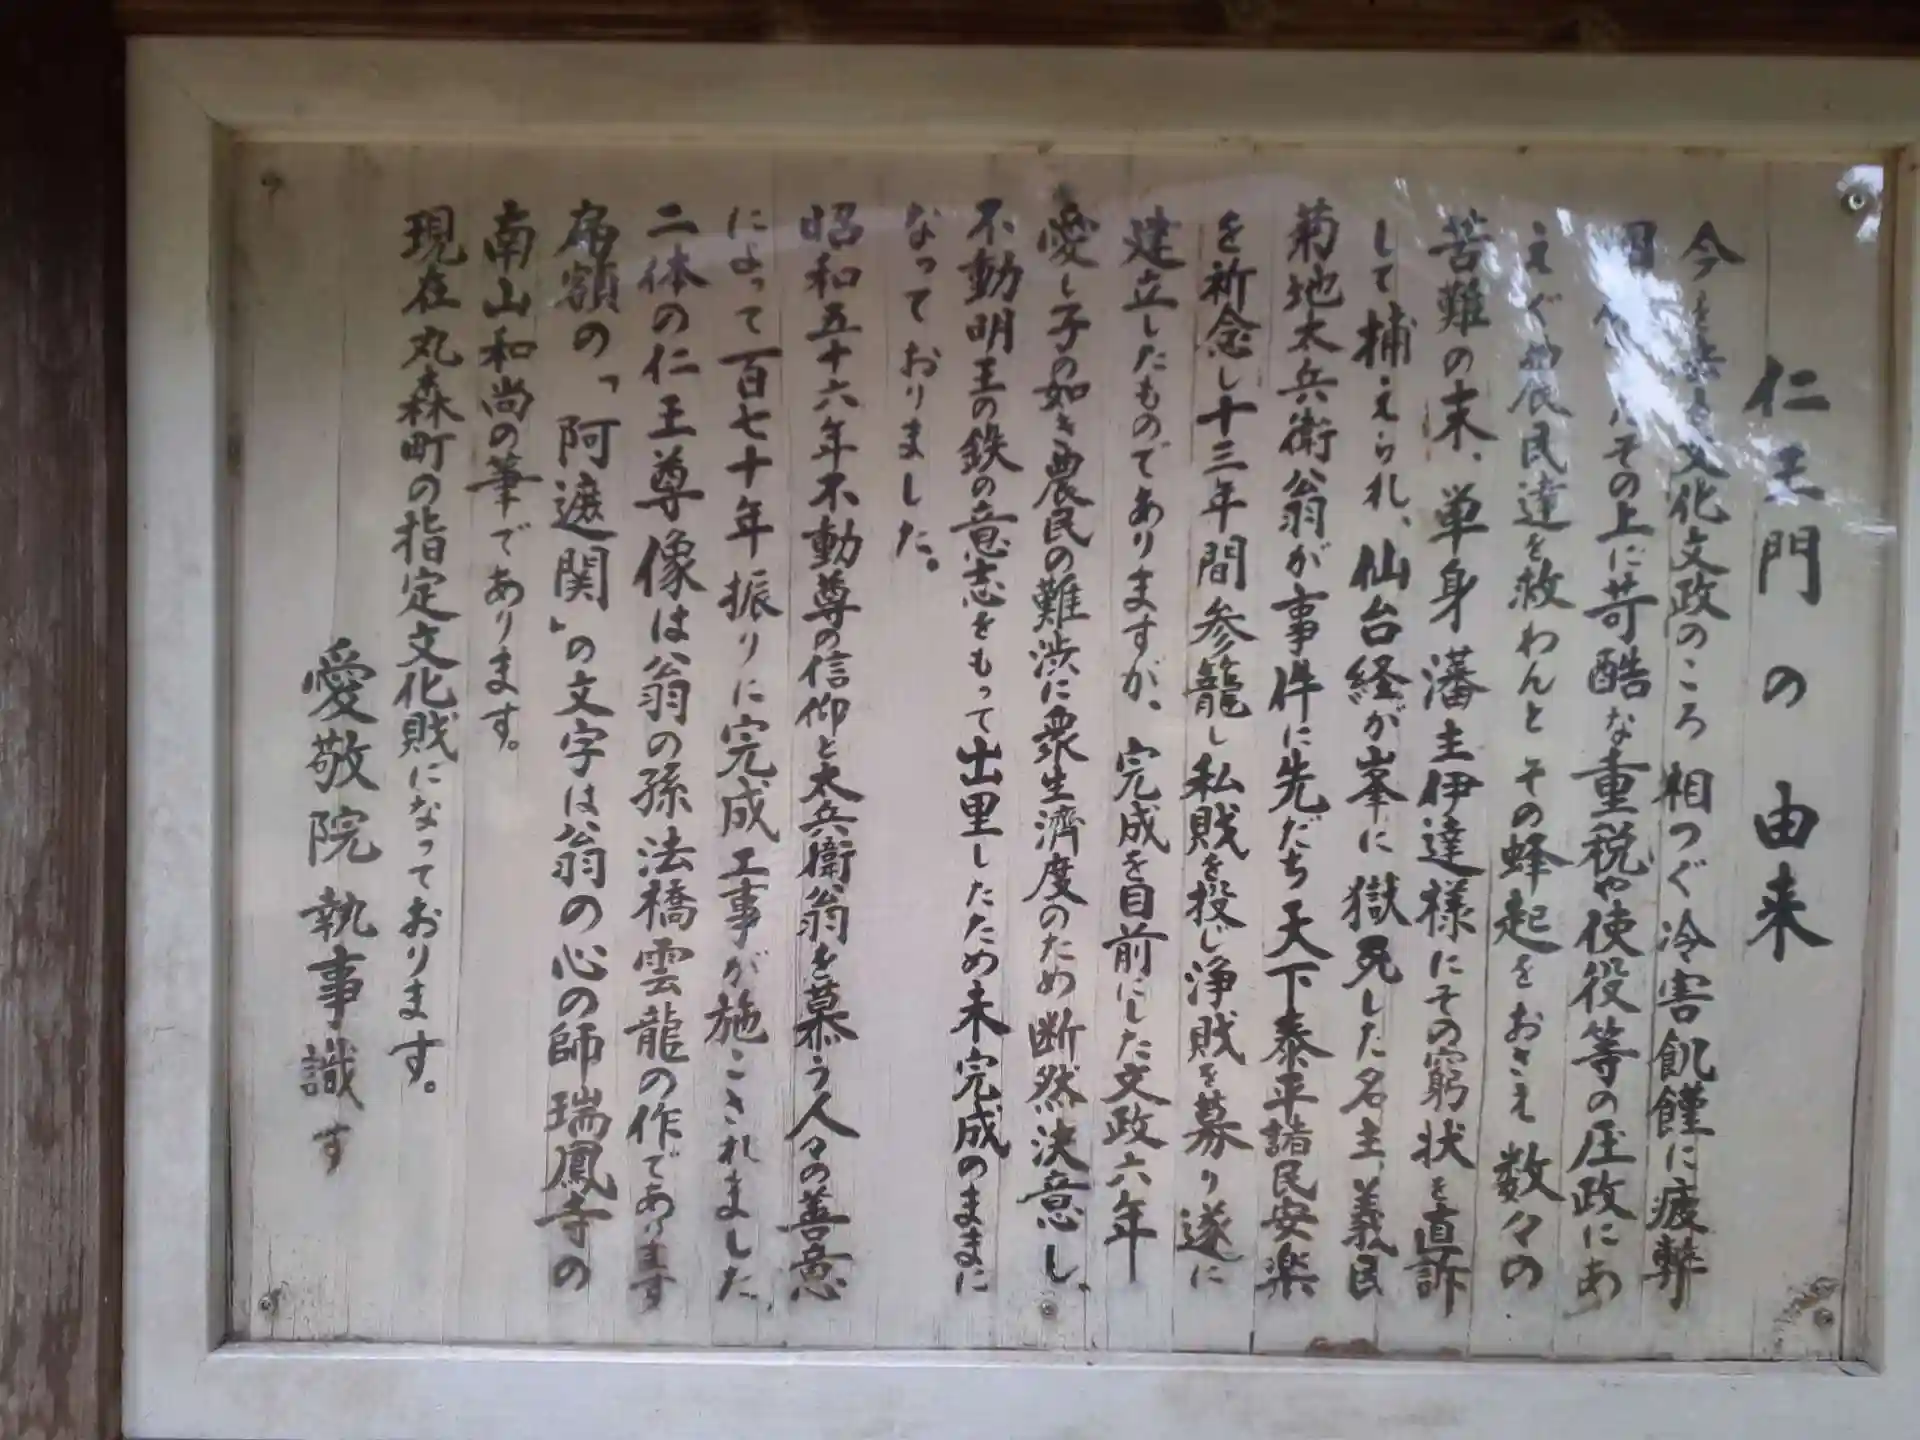 仁王門の由来
今を去る文化文政のころ相つぐ冷害飢饉に疲弊
その上に苛酷な重税や使役等の圧政にあ
えぐ農民達を救わんとその蜂起をおさえ数々の
苦難の末、単身藩主伊達様にその窮状を直訴
して捕えられ、仙台経が峯に獄死した名主、義民
菊地太兵衛翁が事件に先だち天下泰平諸民安楽
を祈念し十三年間参籠し私財を投じ浄財を募り遂に
建立したものでありますが、完成を目前にした文政六年
愛し子の如き農民の難渋に衆生済度のため断然決意し、
不動明王の鉄の意志をもって出里したため未完成のままに
なっておりました。
昭和五十六年不動尊の信仰と太兵衛翁を慕う人々の善意
によって百七十年振りに完成工事が施こされました、
二体の仁王尊像は翁の孫法橋雲龍の作であります
扁額の「阿遮関」の文字は翁の心の師瑞鳳寺の
南山和尚の筆であります。
現在丸森町の指定文化財になっております。
愛敬院執事識す